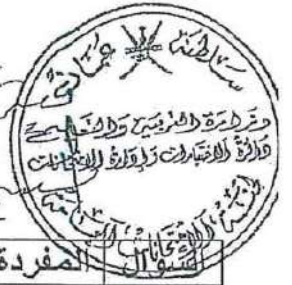 سلطنة عمان
وزارة التربية والتعليم
دائرة الاختبارات وإدارة الامتحانات
السؤال المفردة